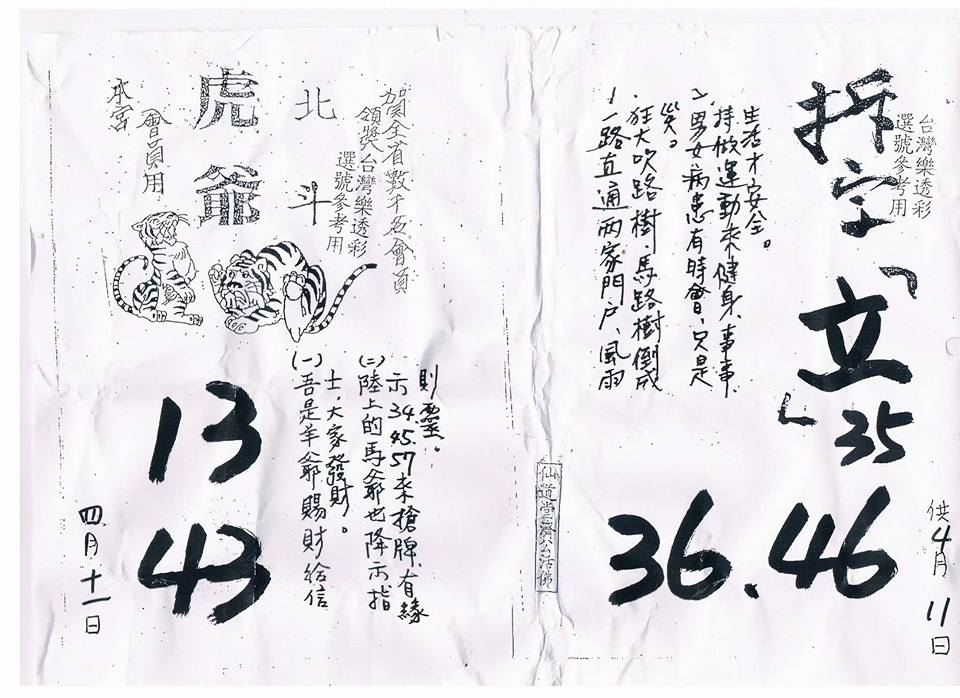 台灣樂透彩
選號參考用
拆字「立」35
1、一路直通兩家門戶、風雨
狂大吹路樹、馬路樹倒成
災。
2、男女病患有時會、只是
持做運動來健身、事事
生活才安全。
36.46
供4月11日
仙道堂濟公活佛
賀全省數千名會員
領獎台灣樂透彩
選號參考用
北斗
虎爺
會員用
本宮
(一)吾是羊爺賜財給信
士、大家發財。
(二)陸上的馬爺也降示指
示34.45.57來搶牌、有緣
則靈。
13
43
四月十一日